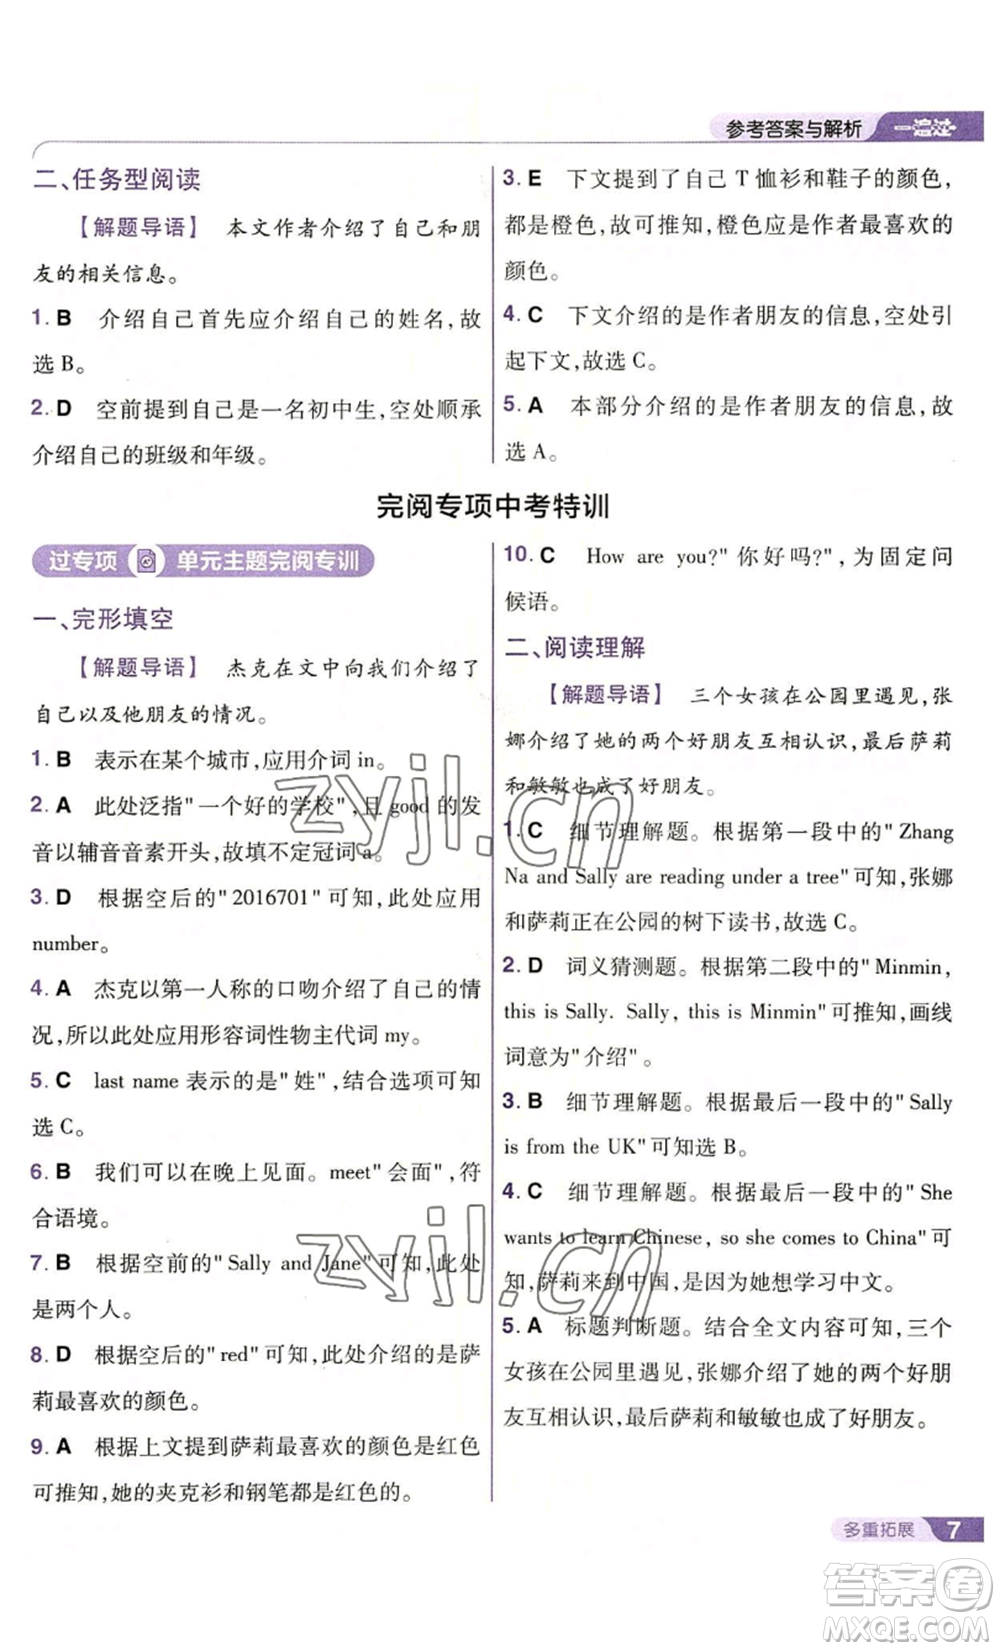 参考答案与解析 一遍过
二、任务型阅读
【解题导语】 本文作者介绍了自己和朋
友的相关信息。
1. B 介绍自己首先应介绍自己的姓名,故
选 B。
2. D 空前提到自己是一名初中生,空处顺承
介绍自己的班级和年级。
3. E 下文提到了自己 T 恤衫和鞋子的颜色,
都是橙色,故可推知,橙色应是作者最喜欢的
颜色。
4. C 下文介绍的是作者朋友的信息,空处引
起下文,故选 C。
5. A 本部分介绍的是作者朋友的信息,故
选 A。
完阅专项中考特训
过专项 单元主题完阅专训
一、完形填空
【解题导语】 杰克在文中向我们介绍了
自己以及他朋友的情况。
1. B 表示在某个城市,应用介词 in。
2. A 此处泛指"一个好的学校",且 good 的发
音以辅音音素开头,故填不定冠词 a。
3. D 根据空后的"2016701"可知,此处应用
number。
4. A 杰克以第一人称的口吻介绍了自己的情
况,所以此处应用形容词性物主代词 my。
5. C last name 表示的是"姓",结合选项可知
选 C。
6. B 我们可以在晚上见面。meet"会面",符
合语境。
7. B 根据空前的"Sally and Jane"可知,此处
是两个人。
8. D 根据空后的"red"可知,此处介绍的是萨
莉最喜欢的颜色。
9. A 根据上文提到萨莉最喜欢的颜色是红色
可推知,她的夹克衫和钢笔都是红色的。
10. C How are you?"你好吗?",为固定问
候语。
二、阅读理解
【解题导语】 三个女孩在公园里遇见,张
娜介绍了她的两个好朋友互相认识,最后萨莉
和敏敏也成了好朋友。
1. C 细节理解题。根据第一段中的"Zhang
Na and Sally are reading under a tree"可知,张娜
和萨莉正在公园的树下读书,故选 C。
2. D 词义猜测题。根据第二段中的"Minmin,
this is Sally. Sally, this is Minmin"可推知,画线
词意为"介绍"。
3. B 细节理解题。根据最后一段中的"Sally
is from the UK"可知选 B。
4. C 细节理解题。根据最后一段中的"She
wants to learn Chinese, so she comes to China"可
知,萨莉来到中国,是因为她想学习中文。
5. A 标题判断题。结合全文内容可知,三个
女孩在公园里遇见,张娜介绍了她的两个好朋
友互相认识,最后萨莉和敏敏成了好朋友。
zyjl.cn
zyjl.cn
多重拓展 7
答案圈
MXQE.COM